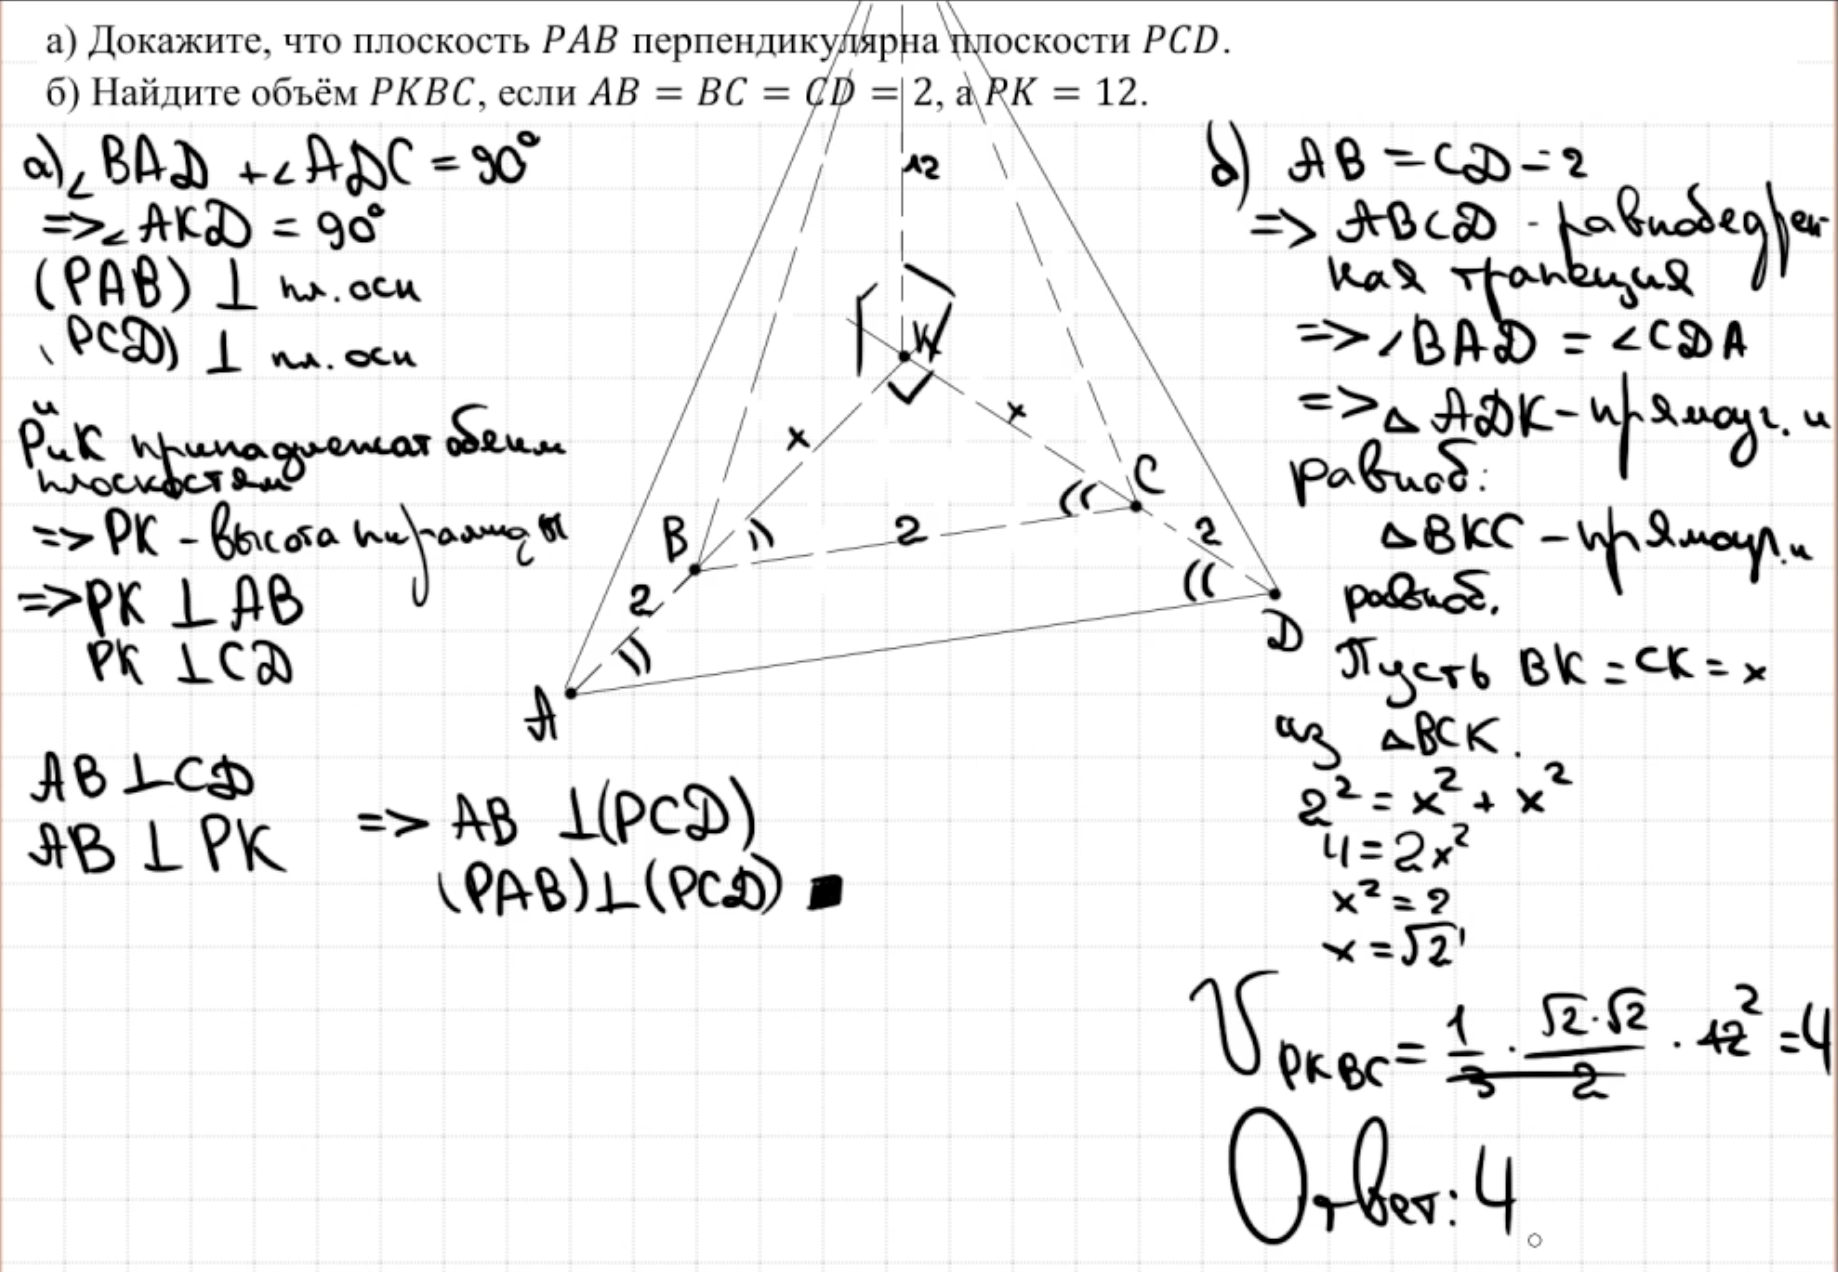 а) Докажите, что плоскость PAB перпендикулярна плоскости PCD.
б) Найдите объём PKBC, если AB = BC = CD = 2, а PK = 12.
а) ∠BAD + ∠ADC = 90°
=> ∠AKD = 90°
(PAB) ⊥ пл. осн
(PCD) ⊥ пл. осн
P и K принадлежат обеим
плоскостям
=> PK - высота пирамиды
=> PK ⊥ AB
PK ⊥ CD
AB ⊥ CD
AB ⊥ PK
=> AB ⊥ (PCD)
(PAB) ⊥ (PCD) ■
12
K
x
x
B
C
2
2
2
A
D
б) AB = CD = 2
=> ABCD - равнобедрен-
ная трапеция
=> ∠BAD = ∠CDA
=> △ADK - прямоуг. и
равноб:
△BKC - прямоуг. и
равноб.
Пусть BK = CK = x
из △BCK.
2² = x² + x²
4 = 2x²
x² = 2
x = √2
V PKBC = 1/3 · √2·√2/2 · 12 2 = 4
Ответ: 4.